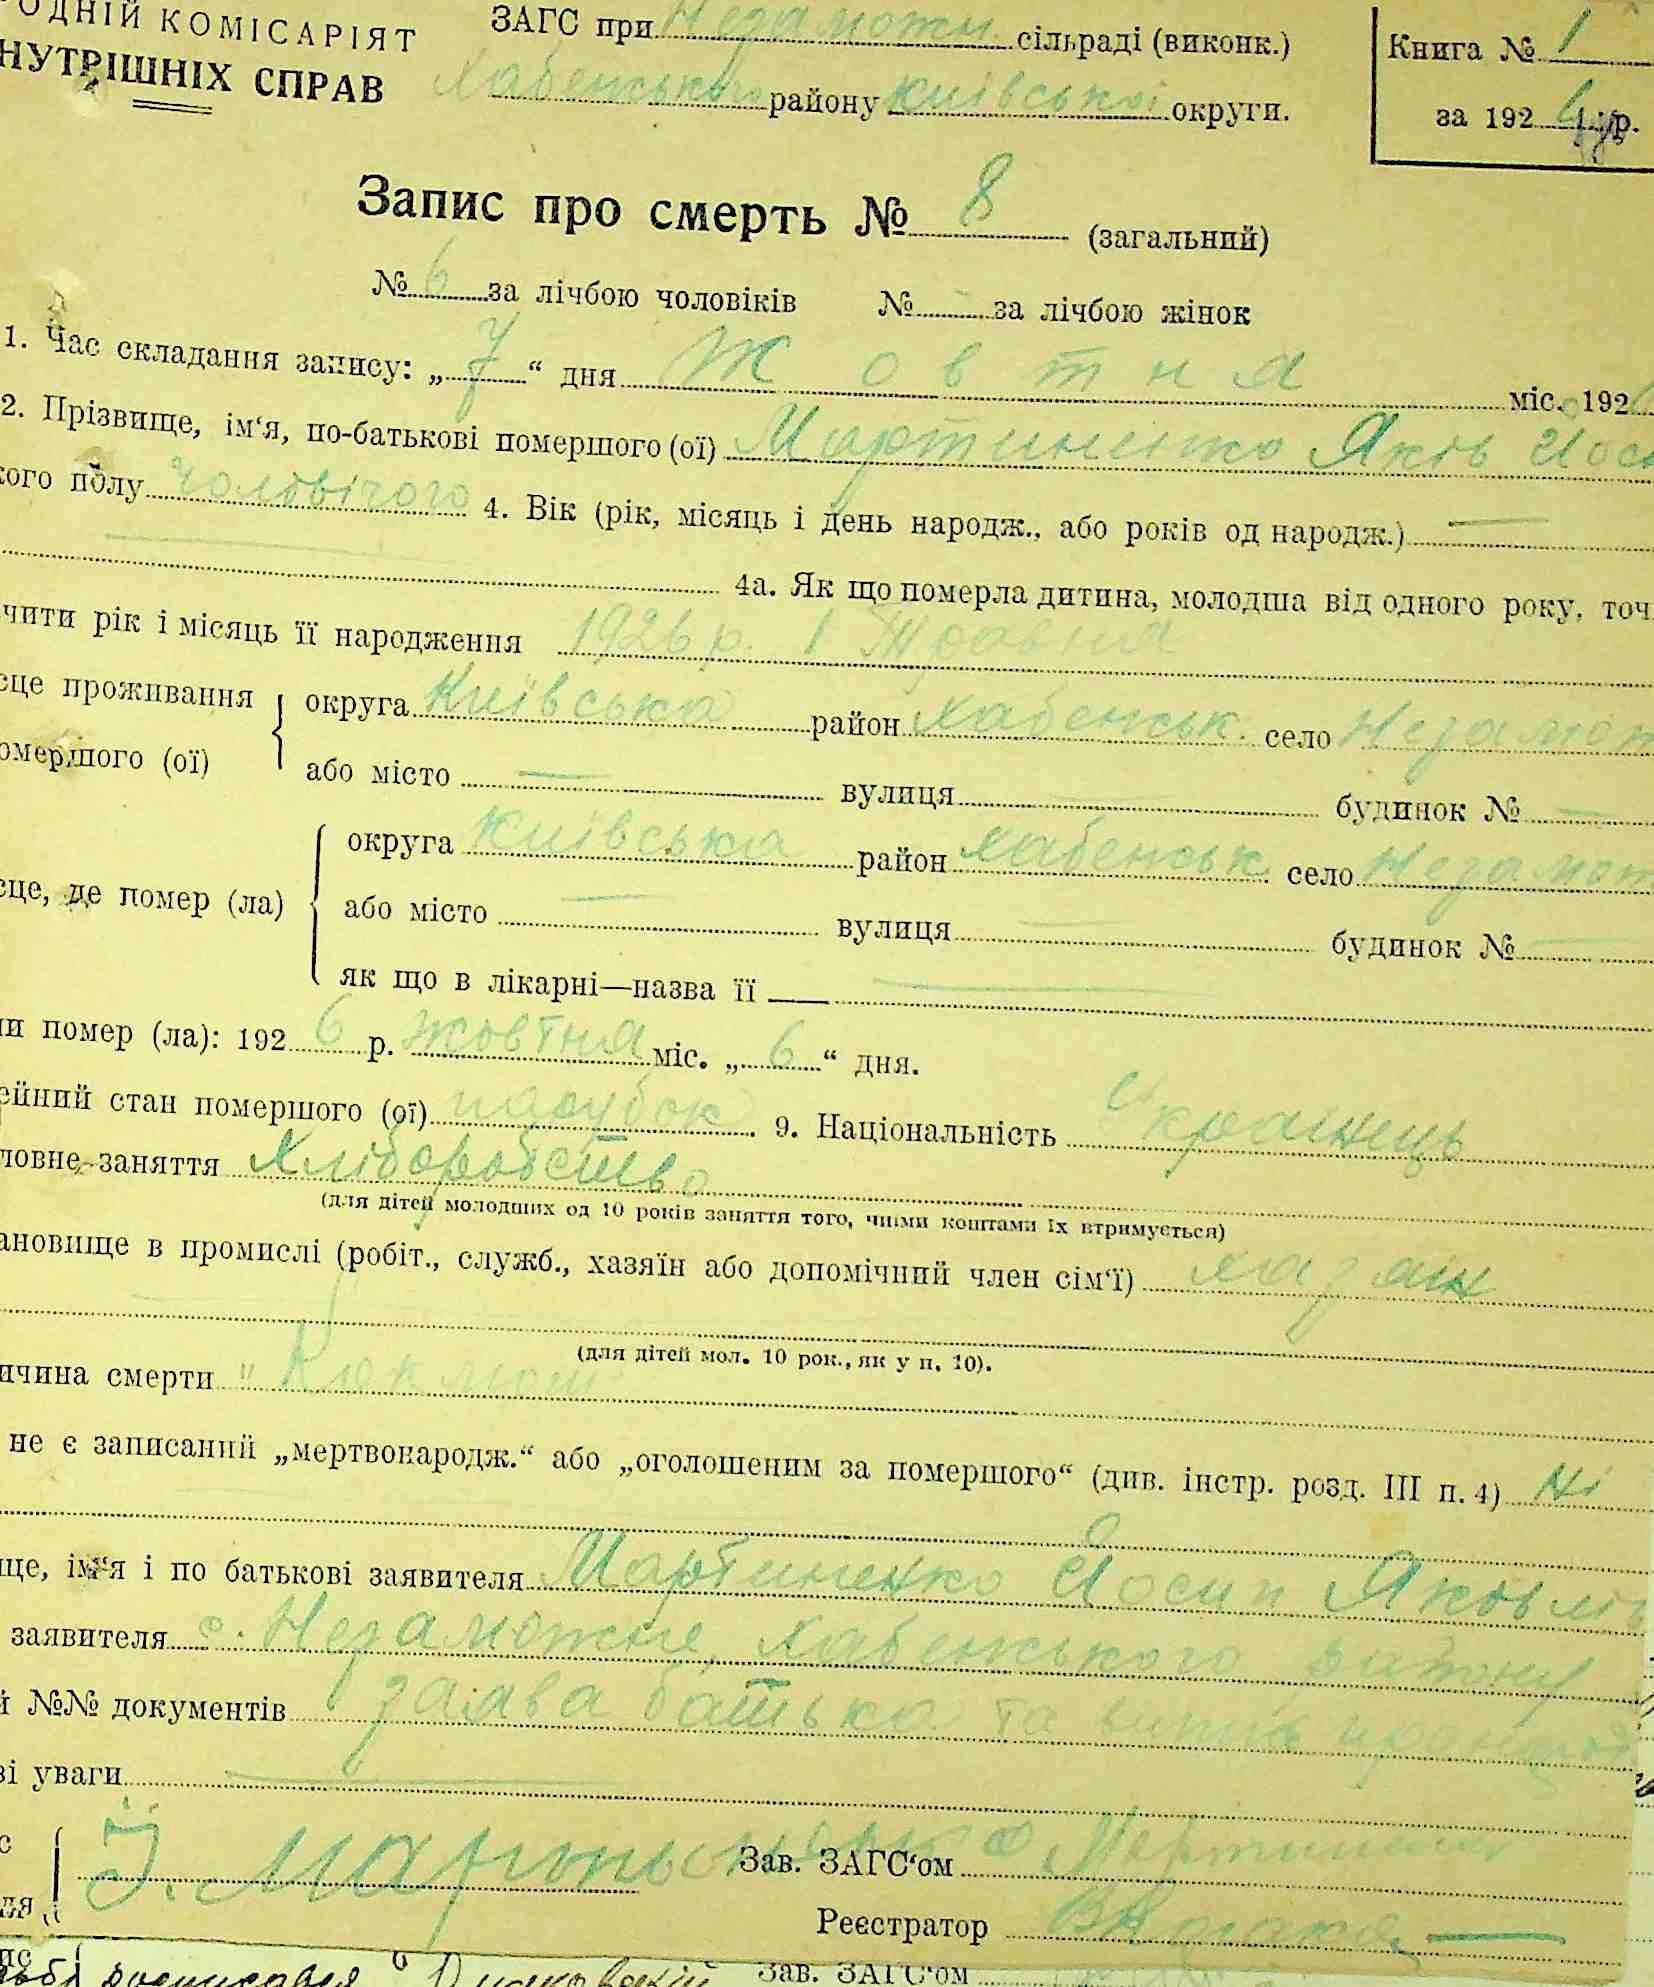 ОДНІЙ КОМІСАРІЯТ
НУТРІШНІХ СПРАВ
ЗАГС при Незаможн. сільраді (виконк.)
Хабенського району Київської округи.
Книга № 1
за 192 р.
Запис про смерть № 8 (загальний)
№ 6 за лічбою чоловіків № за лічбою жінок
1. Час складання запису: „ 7 “ дня Жовтня міс. 192
2. Прізвище, ім‘я, по-батькові помершого (ої) Мартиненко Яків Йос
кого полу чоловічого 4. Вік (рік, місяць і день народж., або років од народж.) —
4а. Як що померла дитина, молодша від одного року, точ
чити рік і місяць її народження 1926 р. 1 Травня
сце проживання округа Київська район Хабенськ. село Незамож
омершого (ої) або місто — вулиця — будинок № —
округа Київська район Хабенськ. село Незамож
сце, де помер (ла) або місто — вулиця — будинок № —
як що в лікарні—назва її —
ли помер (ла): 192 6 р. жовтня міс. „ 6 “ дня.
ейний стан помершого (ої) парубок. 9. Національність Українець
ловне заняття Хліборобство
(для дітей молодших од 10 років заняття того, чиїми коштами їх втримується)
ановище в промислі (робіт., служб., хазяїн або допомічний член сім‘ї) хазяїн
(для дітей мол. 10 рок., як у п. 10).
ичина смерти
не є записаний „мертвонародж.“ або „оголошеним за помершого“ (див. інстр. розд. III п. 4) Ні
ще, ім‘я і по батькові заявителя Мартиненко Йосип Яковлів
заявителя с. Незаможне, Хабенського району
й №№ документів заява батька та
ві уваги —
Й. Мартыненко Зав. ЗАГС‘ом Мартиненко
Реєстратор
Зав. ЗАГС‘ом